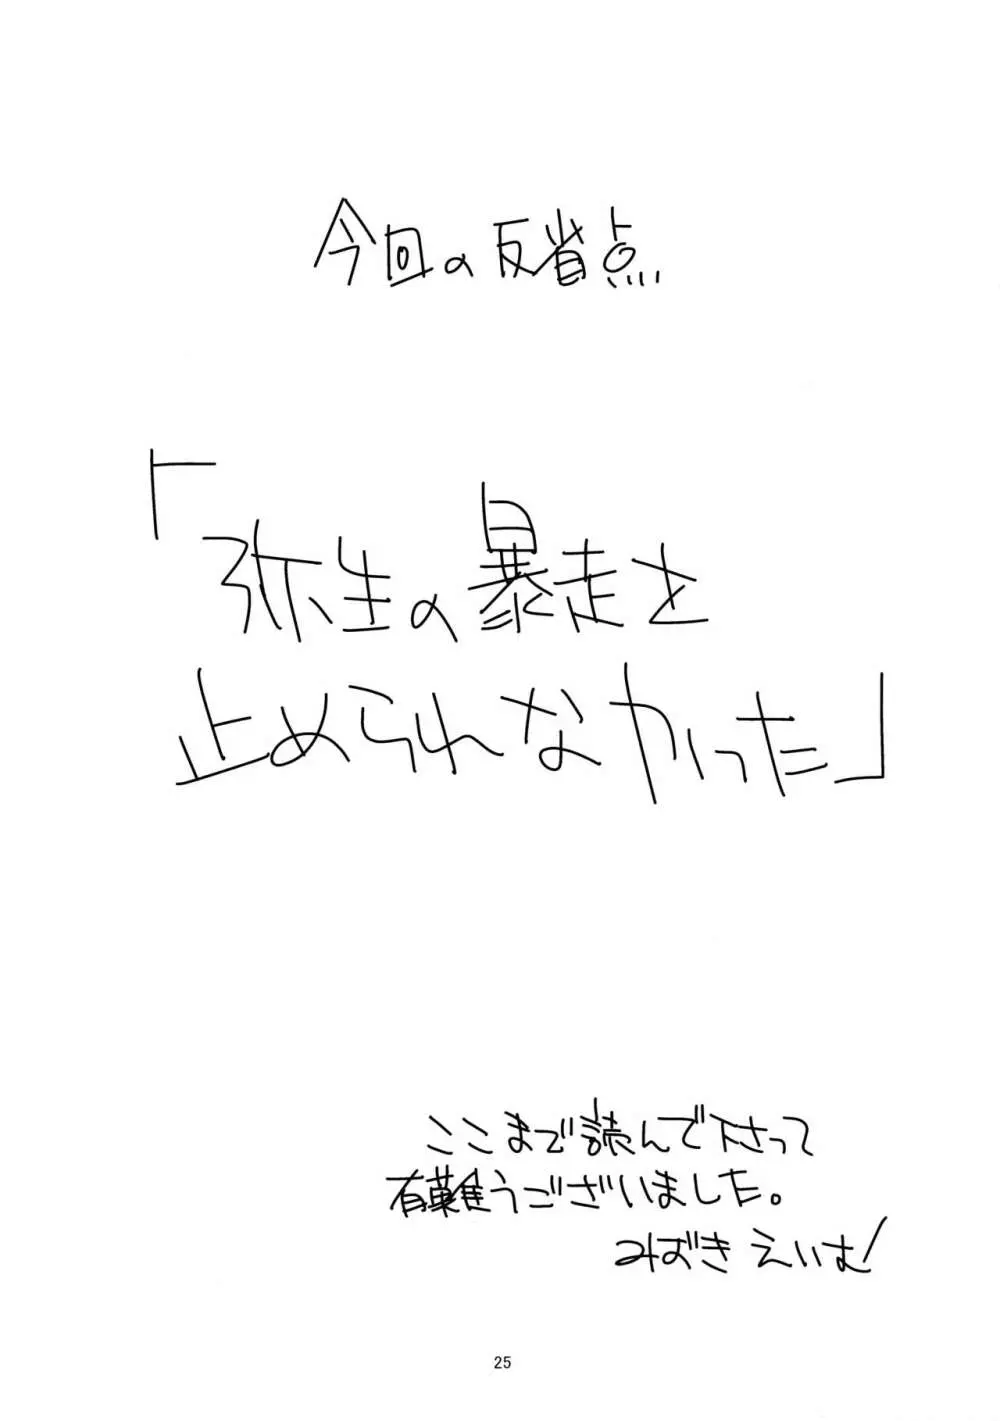 今回の反省点
「弥生の暴走を
止められなかった」
ここまで読んで下さって
有難うございました。
みずきえいむ
25